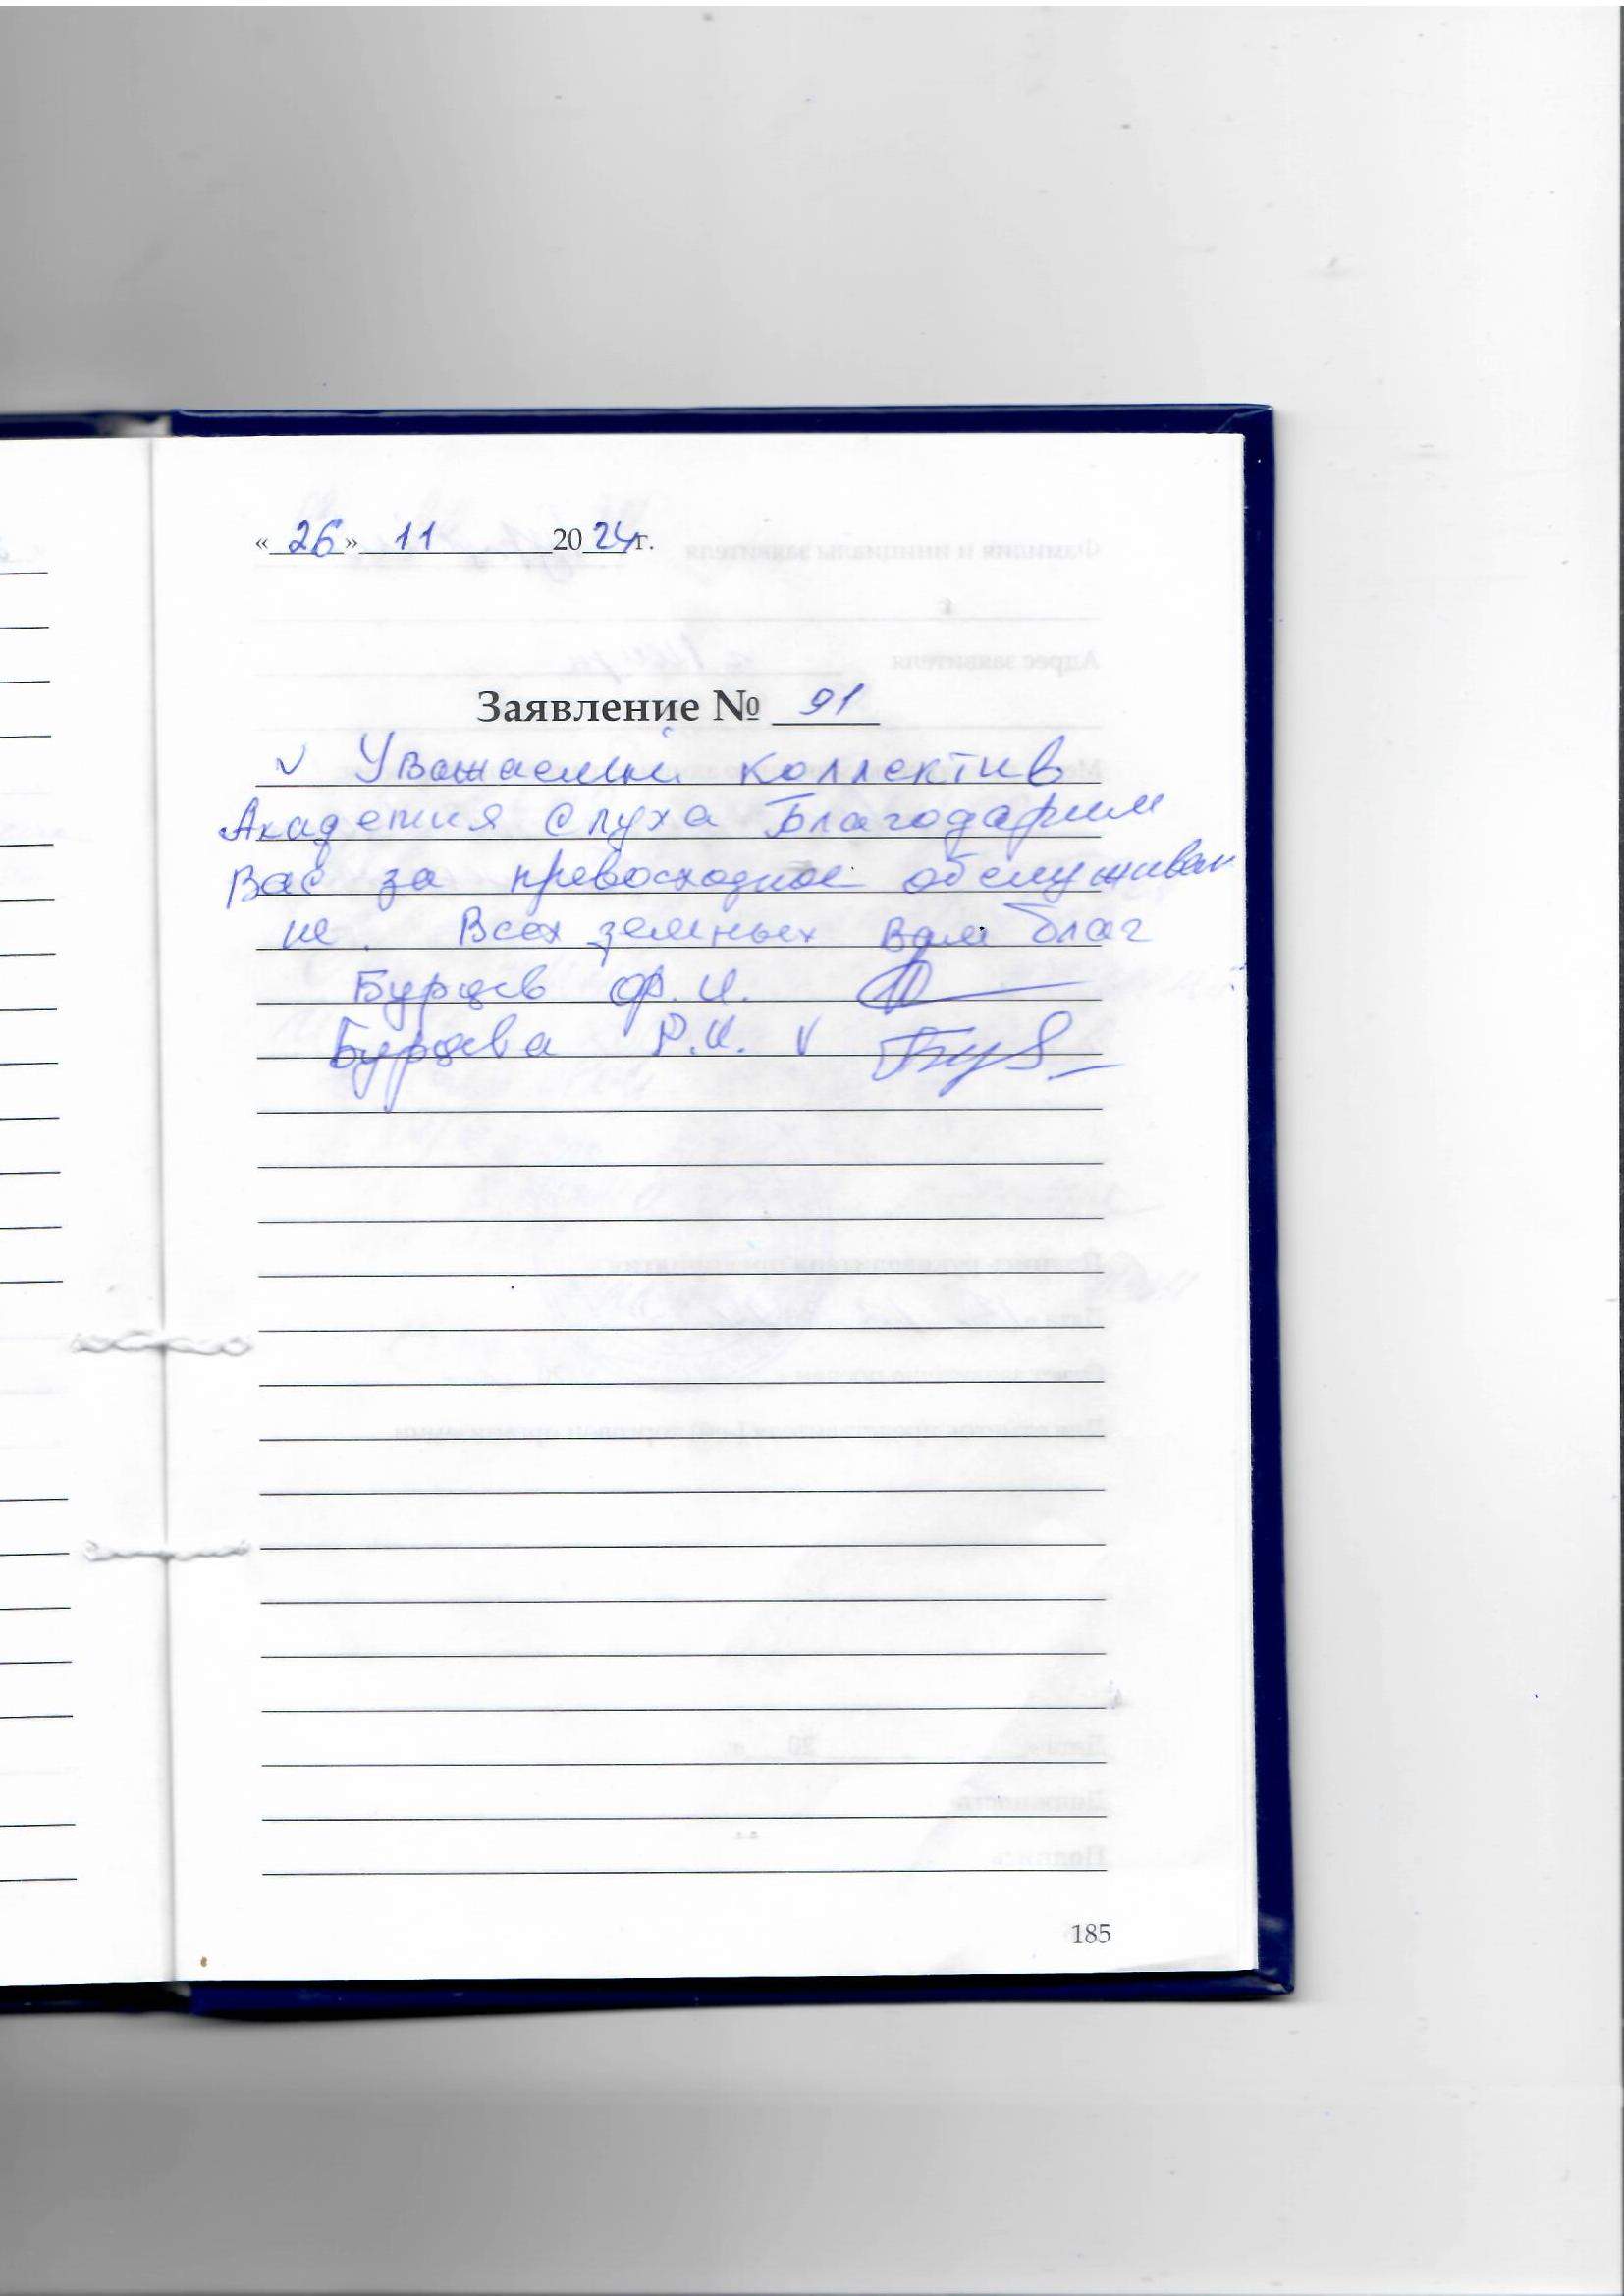 «26» 11 2024г.
Заявление № 91
Уважаемый коллектив
Академия Слуха Благодарим
Вас за превосходное обслужива
ние. Всех земных Вам благ
Бурцев Ф.И.
Бурцева Р.И.
185